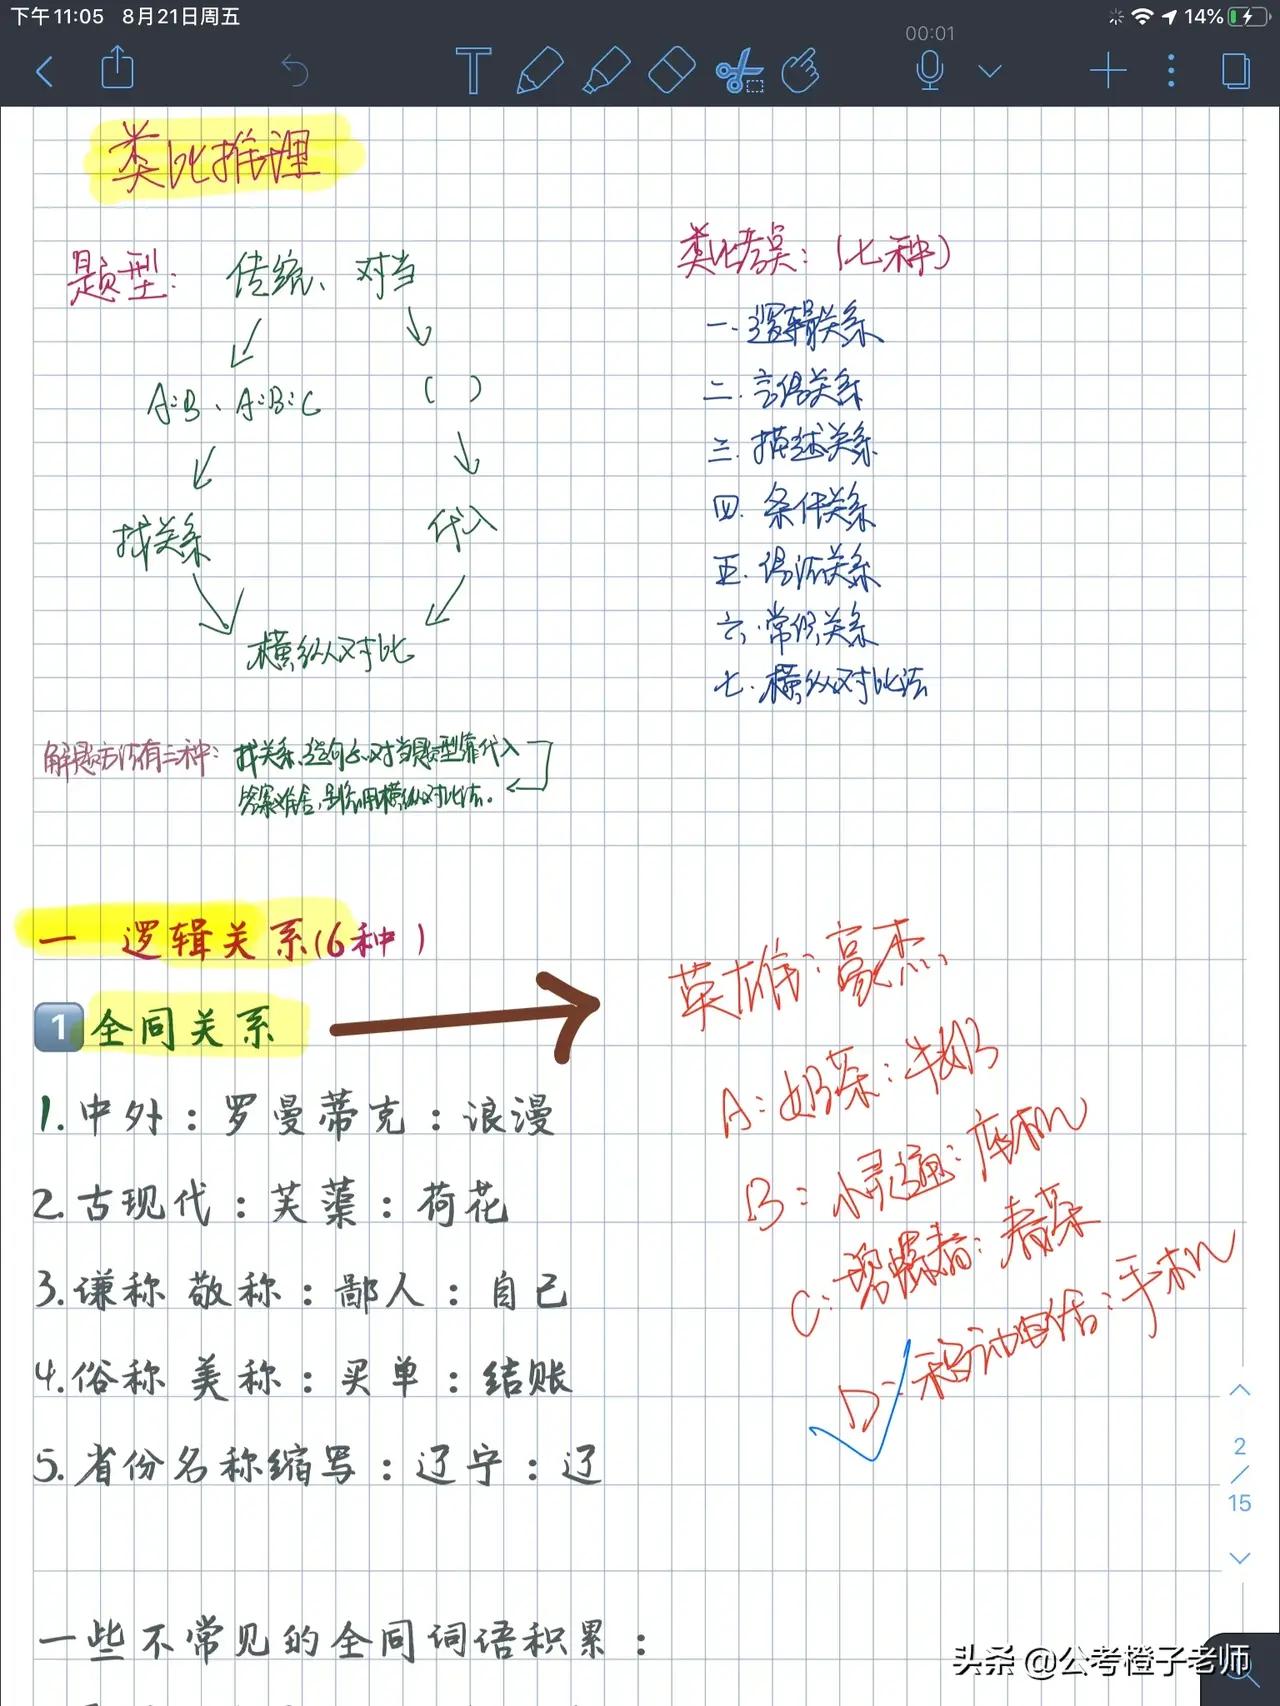 下午11:05 8月21日周五
14%
00:01
类比推理
题型: 传统、对当
A:B、A:B:C
( )
找关系
代入
横纵对比
类比考点:(七种)
一.逻辑关系
二.言语关系
三.描述关系
四.条件关系
五.语法关系
六.常识关系
七.横纵对比法
解题方法有三种: 找关系、造句子、对当题型靠代入
答案难舍,别忘用横纵对比法。
一 逻辑关系(6种)
1 全同关系
1.中外:罗曼蒂克:浪漫
2.古现代:芙蕖:荷花
3.谦称 敬称:鄙人:自己
4.俗称 美称:买单:结账
5.省份名称缩写:辽宁:辽
英雄:豪杰
A:奶茶:牛奶
B:小灵通:座机
C:
D:移动电话:手机
2
/
15
一些不常见的全同词语积累:
头条 @公考橙子老师